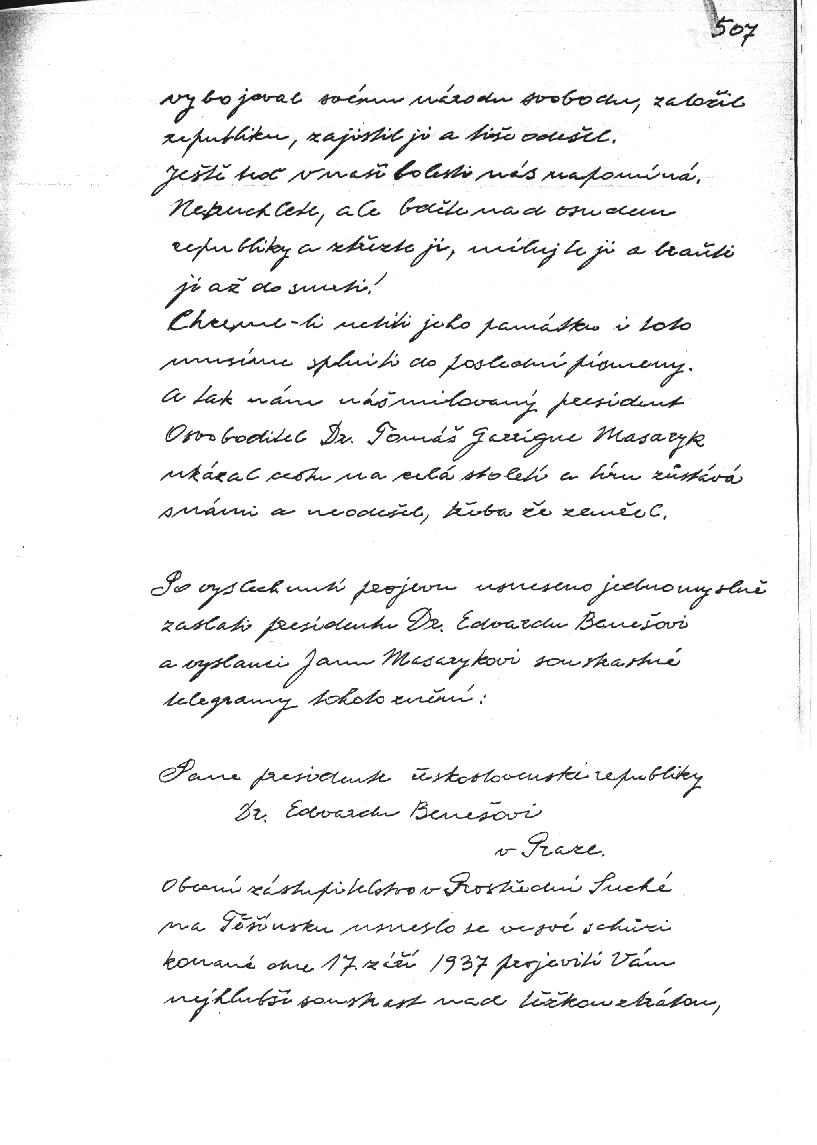 507
vybojoval svému národu svobodu, založil
republiku, zajistil ji a tiše odešel.
Ještě teď v naší bolesti nás napomíná.
Nepuchlete, ale bděte nad osudem
republiky a střezte ji, milujte ji a braňte
ji až do smrti!
Chceme-li uctíti jeho památku i toto
musíme splniti do poslední písmeny.
A tak nám náš milovaný president
Osvoboditel Dr. Tomáš Garrigue Masaryk
ukázal cestu na celá století a tím zůstává
s námi a neodešel, třeba že zemřel.
Po vyslechnutí projevu usneseno jednomyslně
zaslati presidentu Dr. Edvardu Benešovi
a vyslanci Janu Masarykovi soustrastné
telegramy tohoto znění:
Pane presidente československé republiky
Dr. Edvardu Benešovi
v Praze.
Obecní zastupitelstvo v Prostřední Suché
na Těšínsku usneslo se ve své schůzi
konané dne 17. září 1937 projeviti Vám
nejhlubší soustrast nad těžkou ztrátou,